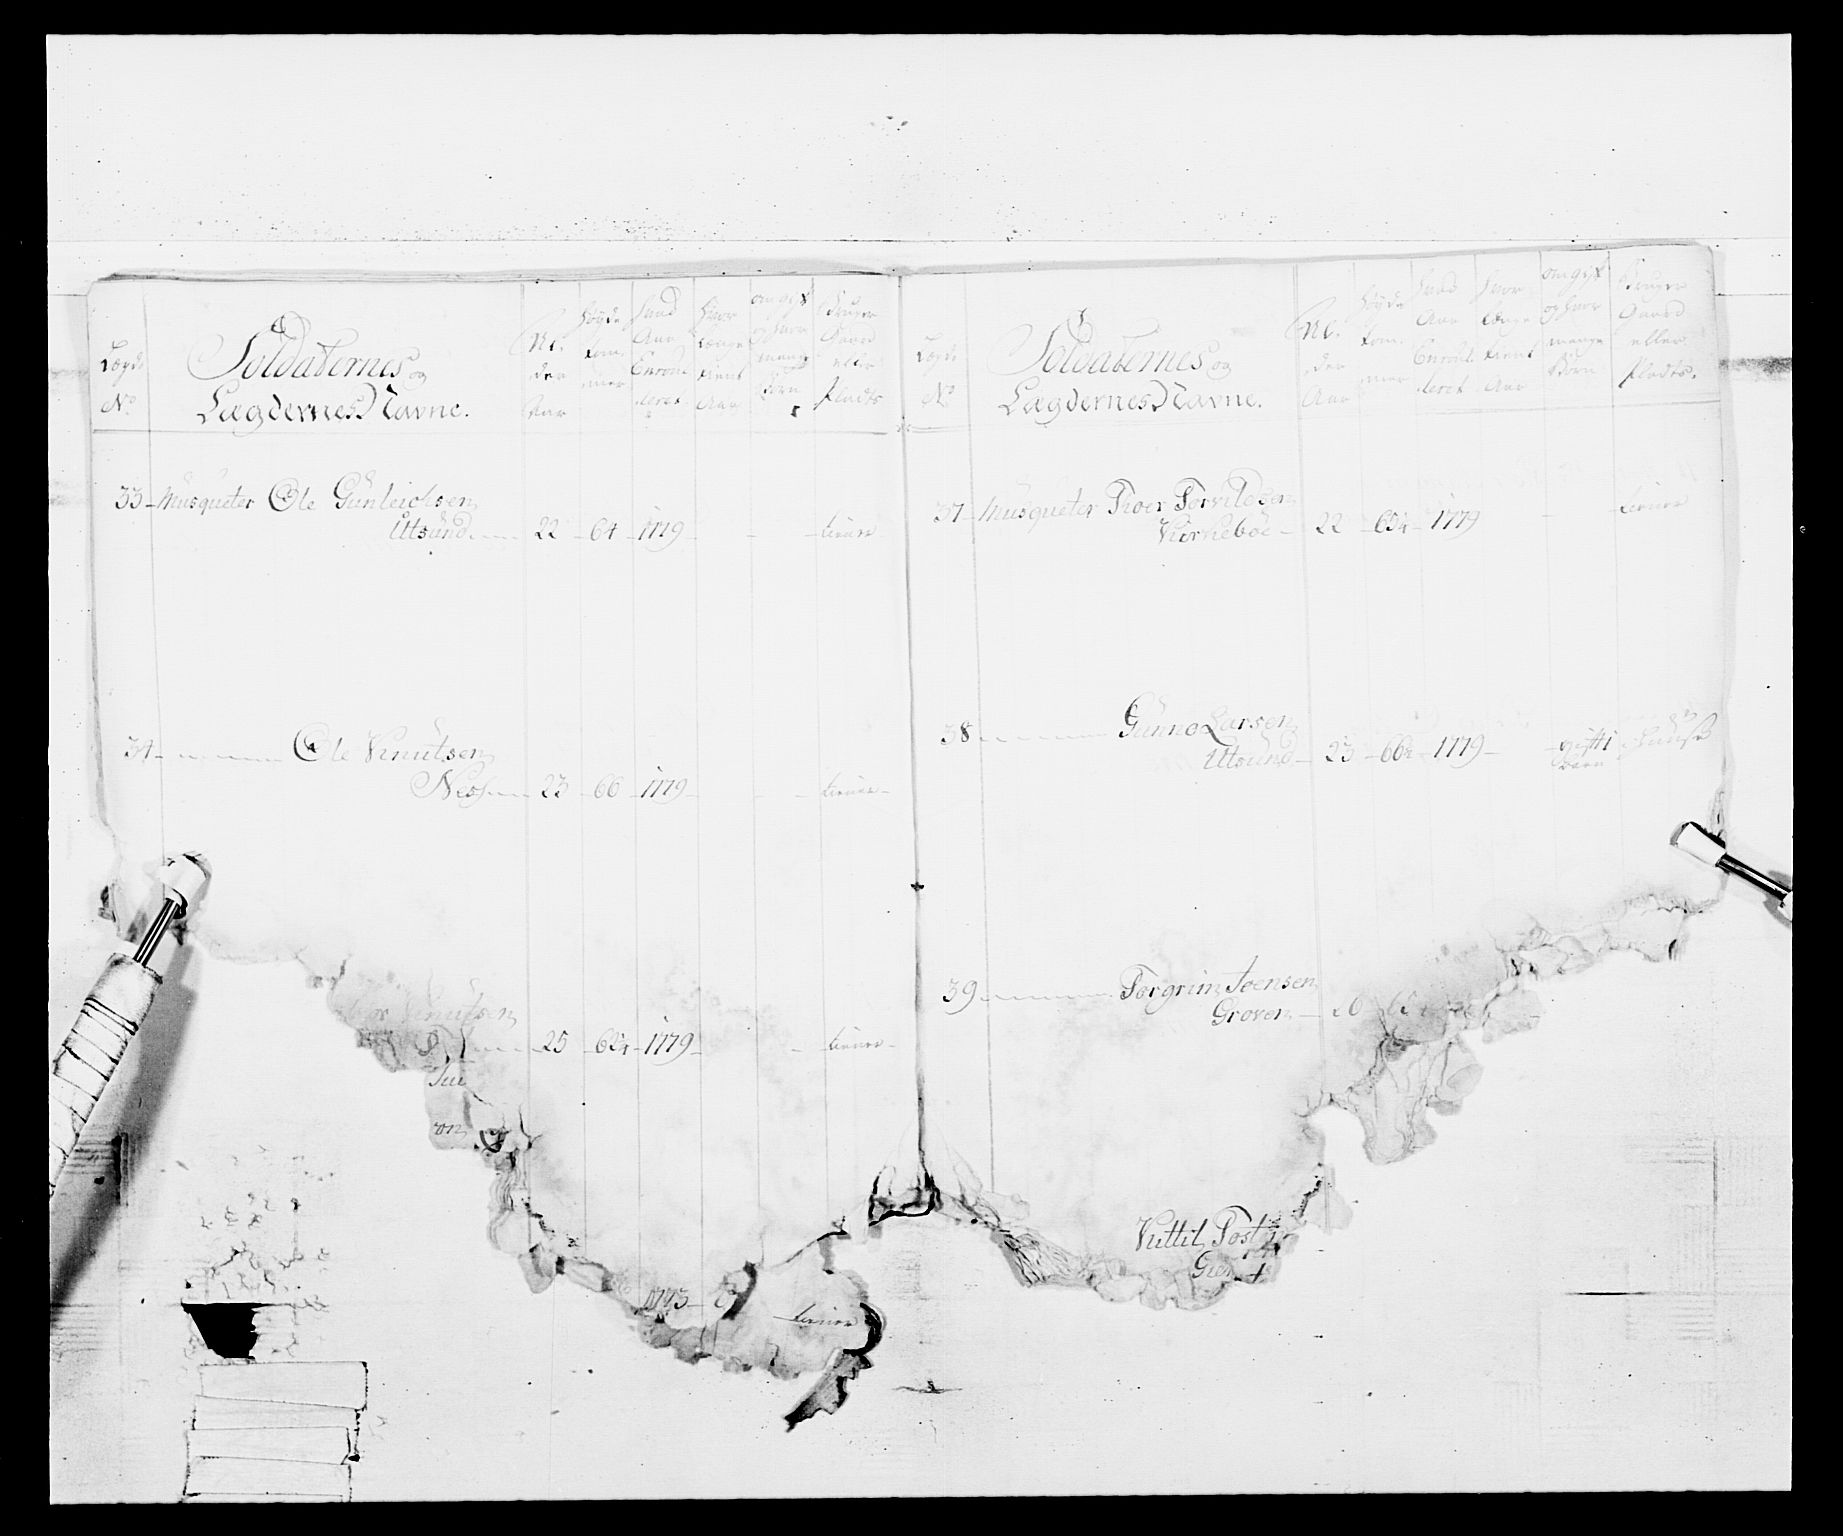 Lægds
No
Soldaternes og
Lægdernes Navne.
Al.
der
Aar
Høyde
Tom-
mer
hvad
Aar
Enroul
leret
hvor
længe
tient
Aar
om gift
og hvor
mange
Børn
Bruger
Gaard
eller
Plads
33 – Musqueter Ole Gunleichsen
Utsund 22 – 64 – 1779 – – tiener –
34 – Ole Knutsen
Næss 23 – 66 – 1779 – – tiener –
Knutsen
25 – 62¼ – 1779 – – tiener –
on
1773 –
tiener
Lægds
No
Soldaternes og
Lægdernes Navne.
Al.
der
Aar
Høyde
Tom-
mer
hvad
Aar
Enroul
leret
hvor
længe
tient
Aar
om gift
og hvor
mange
Børn
Bruger
Gaard
eller
Plads.
37 – Musqueter Thoer Torvildsen
Kirkebøe – 22 – 65¼ – 1779 – tiener
38 – Gunno Larsen
Utsund – 23 – 66½ – 1779 – gift 1
barn
39 – Torgrim Joensen
Groven – 26
Kittil Tost